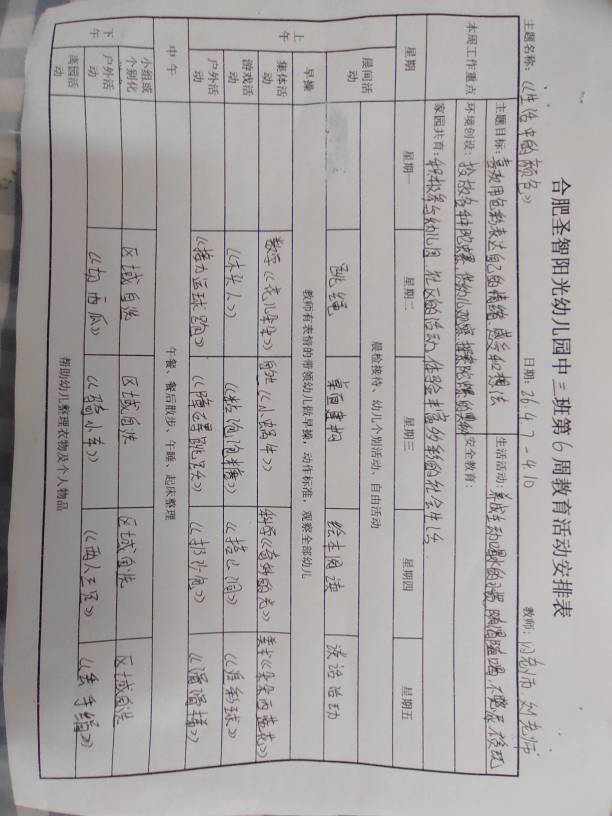 合肥圣智阳光幼儿园中三班第6周教育活动安排表
主题名称：《生活中的颜色》 日期：26.4.7-4.10 教师：闫老师 刘老师
本周工作重点
主题目标：喜欢用色彩表达自己的情绪、感受和想法
生活活动：养成主动喝水的习惯，随渴随喝，不憋尿
环境创设：投放各种陀螺，供幼儿观察、探索陀螺的奥秘
安全教育：
家园共育：积极参与幼儿园、社区的活动，体验丰富多彩的社会生活
星期 星期一 星期二 星期三 星期四 星期五
晨检接待、幼儿个别活动、自由活动
晨间活动 跳绳 桌面建构 绘本阅读 谈话活动
早操 教师有表情的带领幼儿做早操，动作标准，观察全部幼儿
上午
集体活动 数学《花儿朵朵》 《小蜗牛》 科学《奇妙的光》 美术《朵朵雨花》
游戏活动 《木头人》 《粘泡泡糖》 《搭山洞》 《运彩球》
户外活动 《接力运球跑》 《障碍跳跃》 《扔沙包》 《滑滑梯》
中午 午餐、餐后散步、午睡、起床整理
下午
小组或个别化 区域自选 区域自选 区域自选 区域自选
户外活动 《切西瓜》 《骑小车》 《两人三足》 《丢手绢》
离园活动 帮助幼儿整理衣物及个人物品